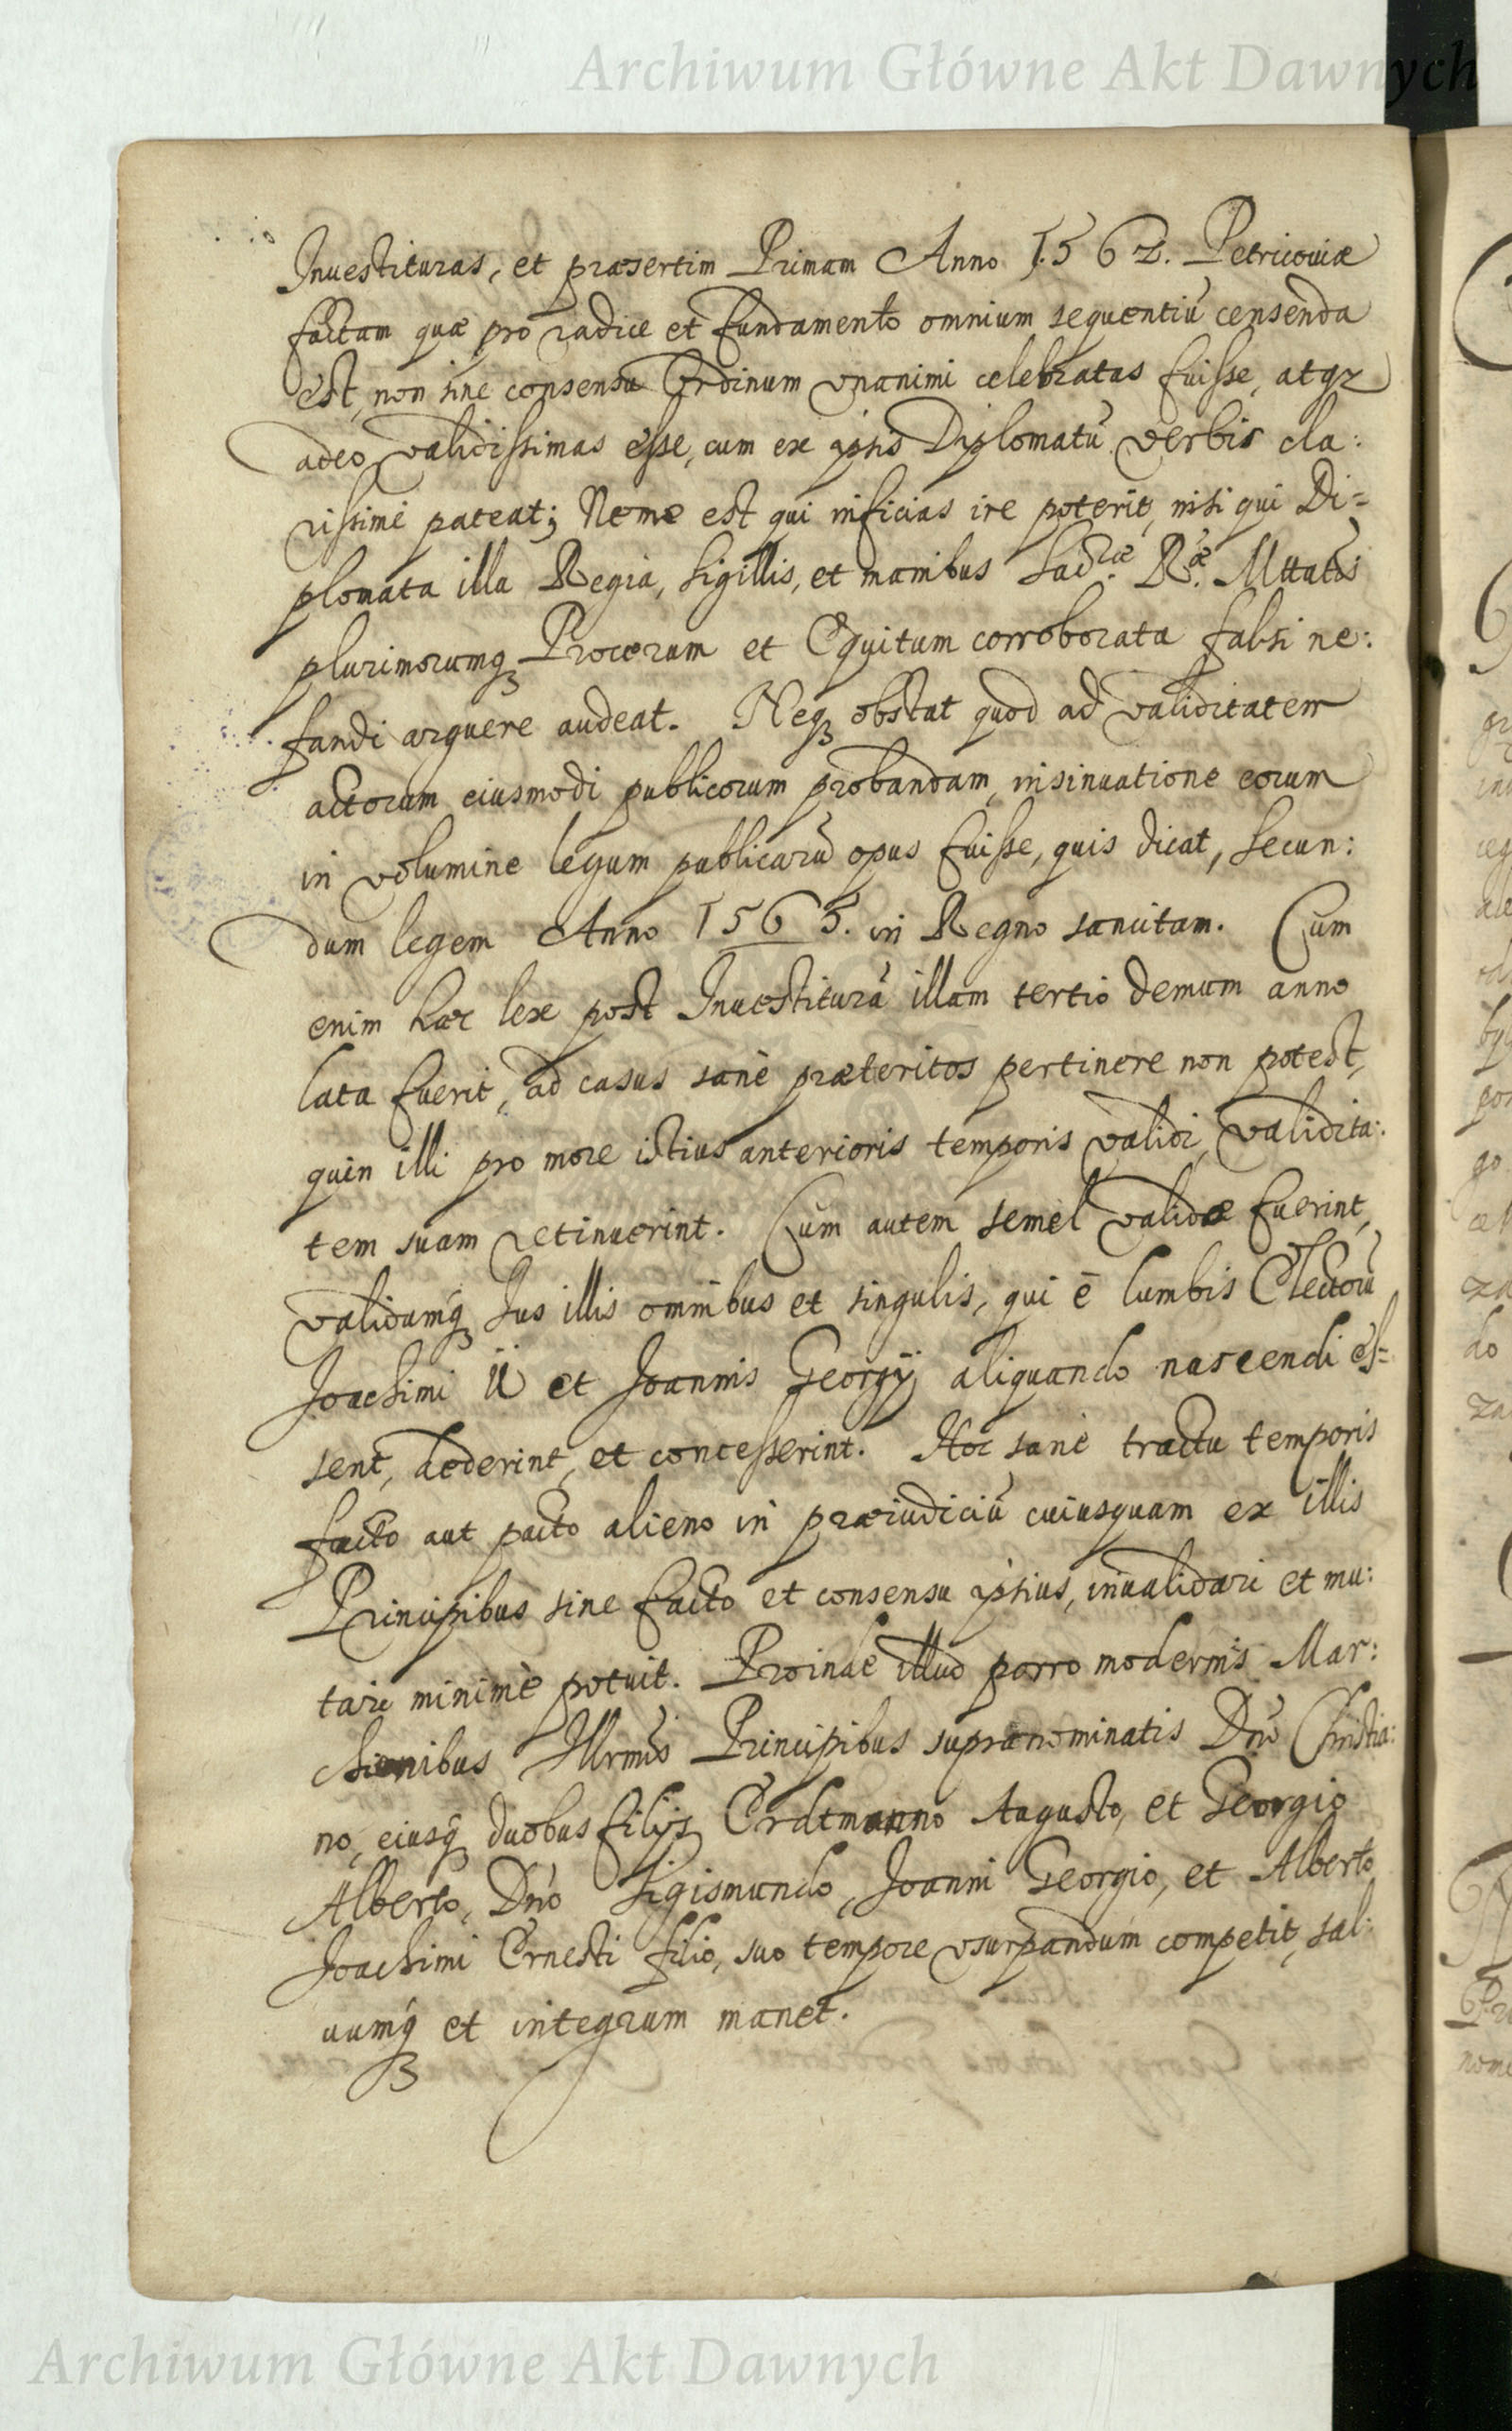 Archiwum Główne Akt Dawnych
Inuestituras, et præsertim Primam Anno 1562. Petricouiæ
factam quæ pro radice et fundamento omnium sequentiũ censenda
est, non sine consensu Ordinum vnanimi celebratas fuisse, atqz
adeo validissimas esse, cum ex ipsis Diplomatũ verbis cla:
rissimè pateat; Nemo est qui inficias ire poterit, nisi qui Di=
plomata illa Regia, sigillis, et manibus Sacræ. Ræ. Mttatis
plurimorumqꝫ Procerum et Equitum corroborata falsi ne:
fandi arguere audeat. Neqꝫ obstat quod ad validitatem
actorum eiusmodi publicorum probandam, insinuatione eorum
in volumine legum publicarũ opus fuisse, quis dicat, secun:
dum legem Anno 1565. in Regno sancitam. Cum
enim hæc lex post Inuestiturã illam tertio demum anno
lata fuerit, ad casus sanè præteritos pertinere non potest,
quin illi pro more istius anterioris temporis validi, validita:
tem suam retinuerint. Cum autem semel validæ fuerint,
validumqꝫ Jus illis omnibus et singulis, qui è lumbis Electorũ
Joachimi II et Joannis Georgÿ aliquando nascendi es=
sent, dederint, et concesserint. Hoc sanè tractu temporis
facto aut pacto alieno in præiudiciũ cuiusquam ex illis
Principibus sine facto et consensu ipsius, inualidari et mu:
tari minimè potuit. Proinde illud porro modernis Mar:
chionibus Illrmis Principibus supranominatis Dno Christia:
no, eiusqꝫ duobus filÿs Erdtmanno Augusto, et Georgio
Alberto, Dno Sigismundo, Joanni Georgio, et Alberto
Joachimi Ernesti filio, suo tempore vsurpandum competit, sal:
uumqꝫ et integrum manet.
Archiwum Główne Akt Dawnych